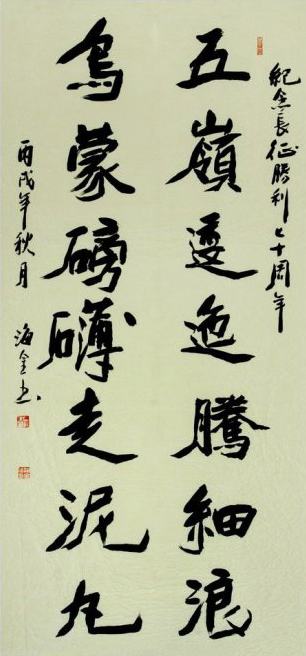 紀念長征勝利七十周年
五嶺逶迤騰細浪
烏蒙磅礴走泥丸
丙戌年秋月
海金书